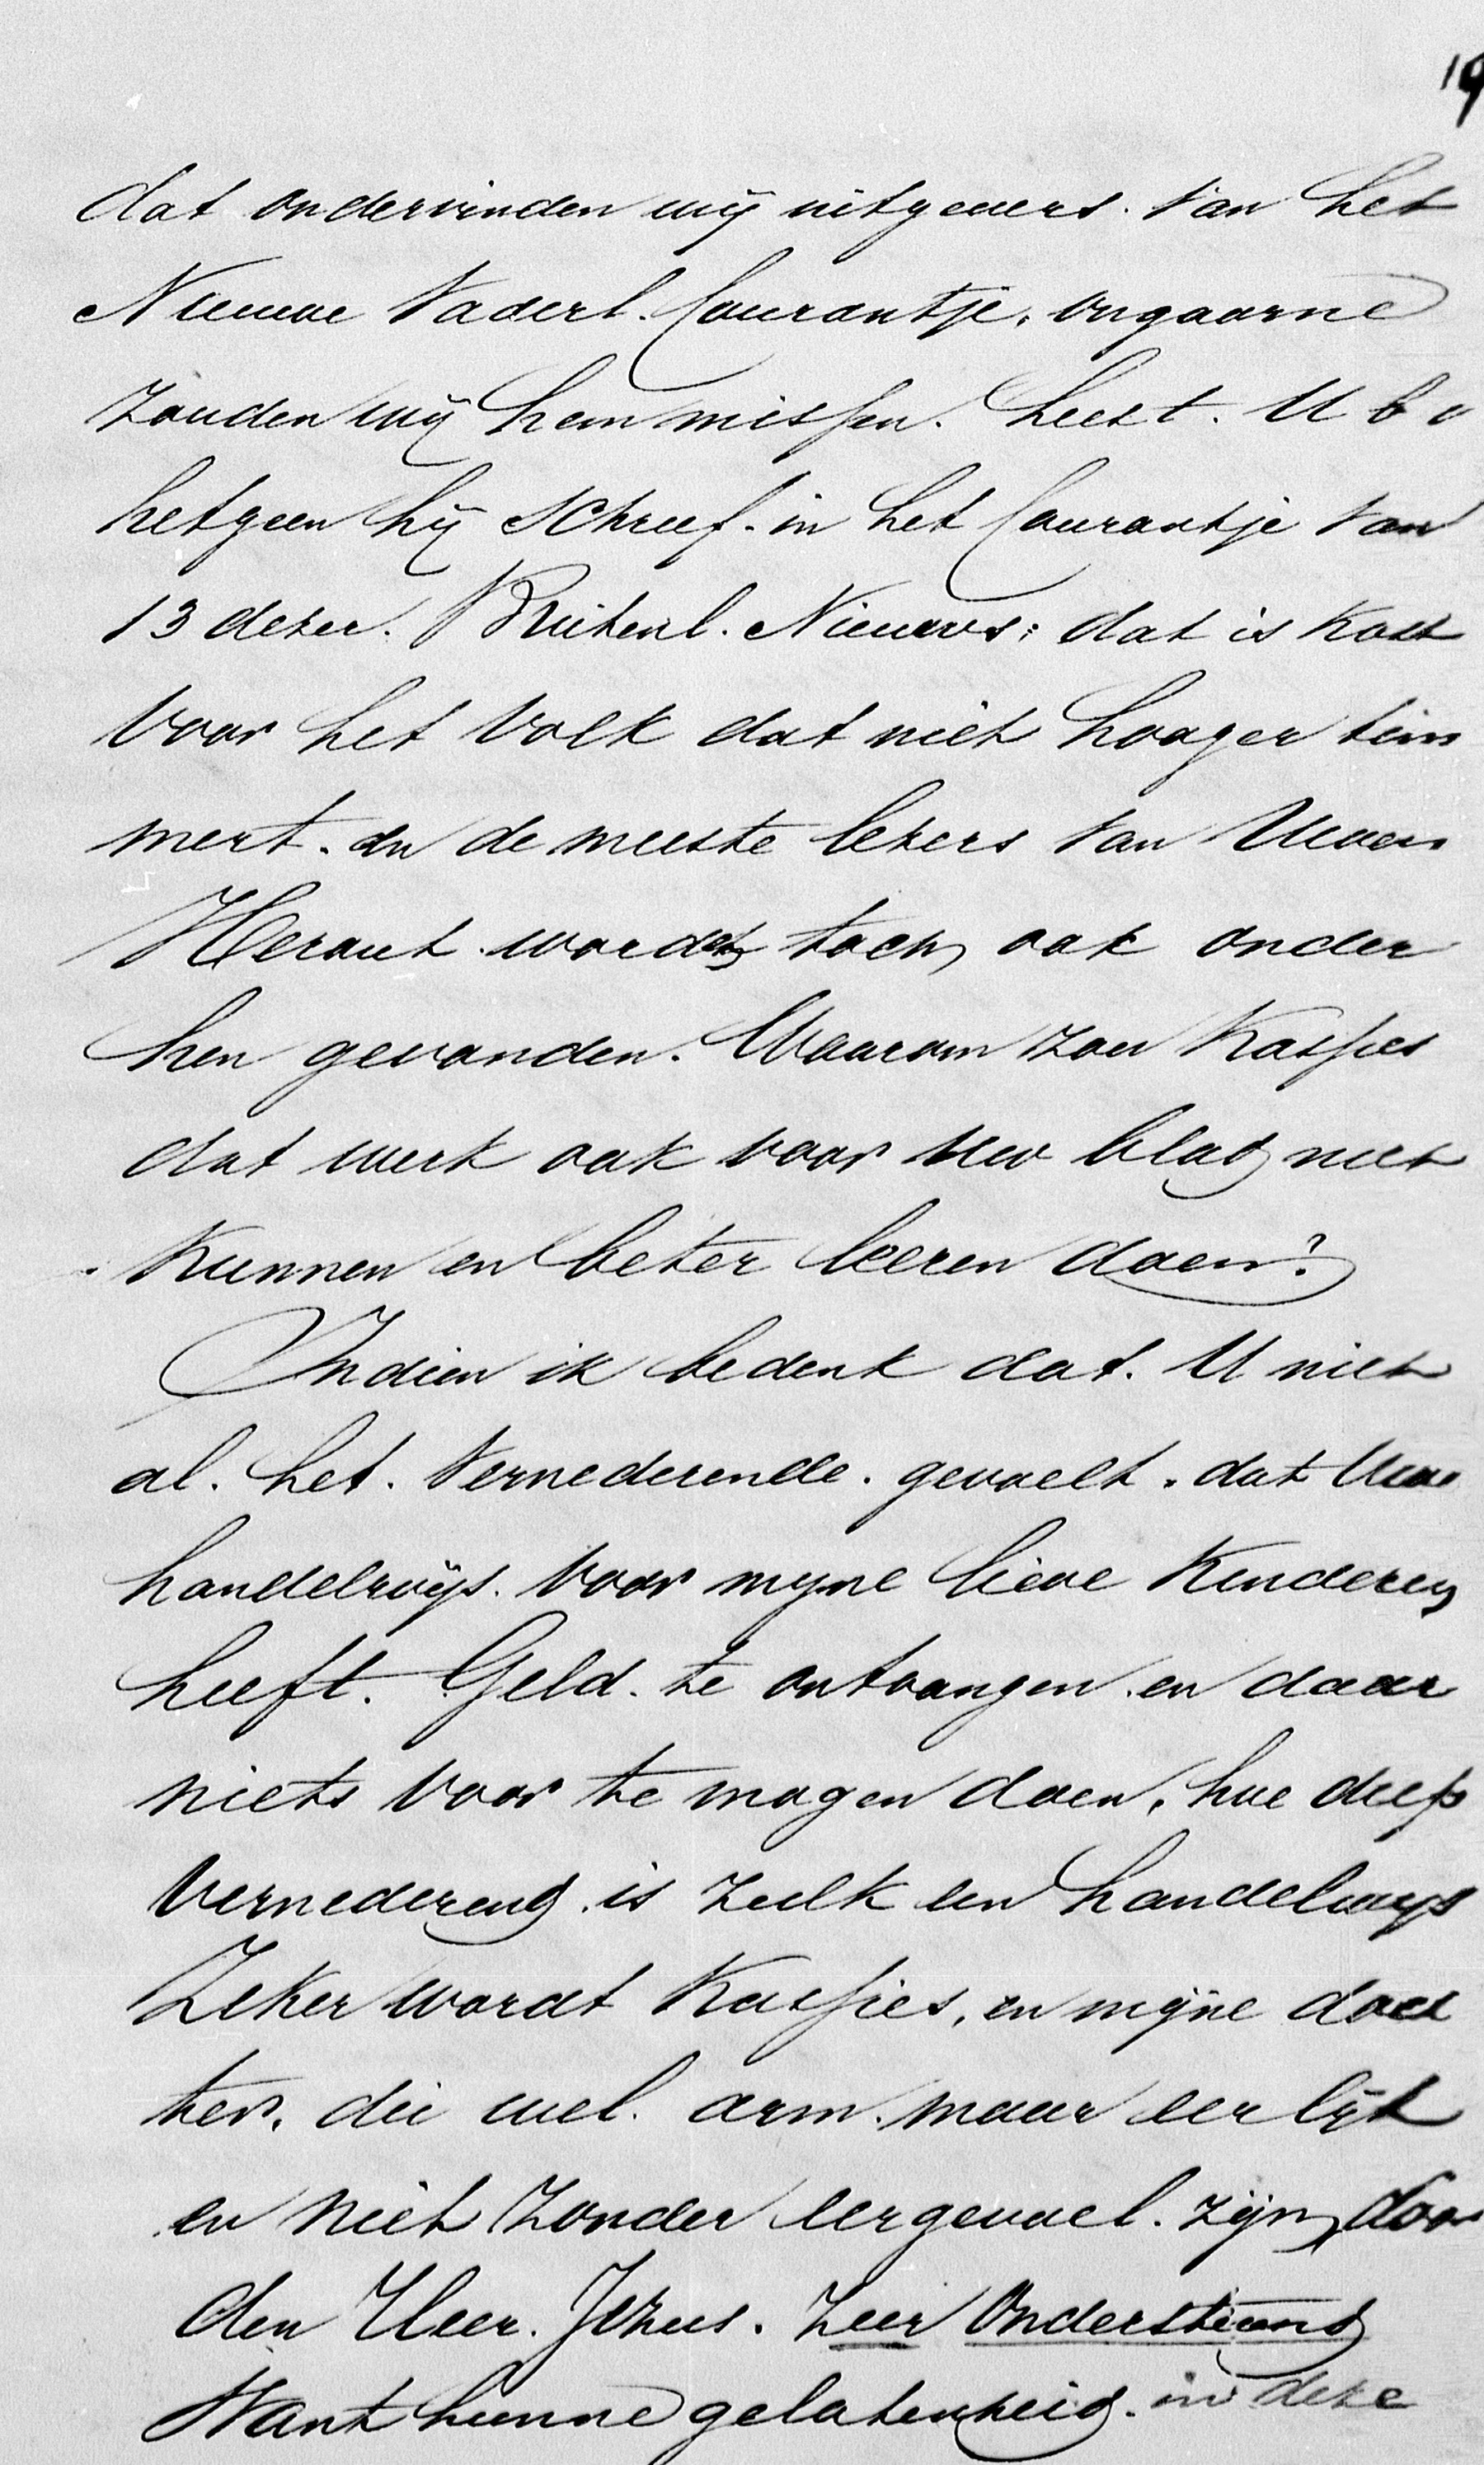 19
dat ondervinden wij uitgevers. van het
Nieuwe Vaderl. Courantje, ongaarne
zouden wij hem missen. Leest. U b v
hetgeen hij schreef. in het Courantje van
13 dezer. Buitenl. Nieuws: dat is kost
voor het volk dat niet hooger tim
mert. en de meeste lezers van Uwen
Heraut worden toch ook onder
hen gevonden. Waarom zou Kasjies
dat werk ook voor Uw blad niet
kunnen en beter leeren doen?
Indien ik bedenk dat. U niet
al. het. vernederende. gevoelt. dat Uwe
handelwijs. voor myne lieve kinderen
heeft. Geld. te ontvangen en daar
niets voor te mogen doen, hoe diep
vernederend. is zulk een handelwijs
Zeker wordt Kasjies, en mijne doch
ter, die wel. arm. maar eerlijk
en niet zonder eergevoel. zijn, door
den Heer. Jezus. zeer ondersteund
Want hunne gelatenheid. in deze